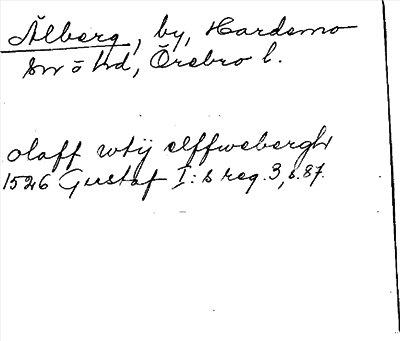 Älberg, by, Hardemo
sn ö hd, Örebro l.
olaff wtij elffwebergh
1526 Gustaf I:s reg. 3, s. 87.